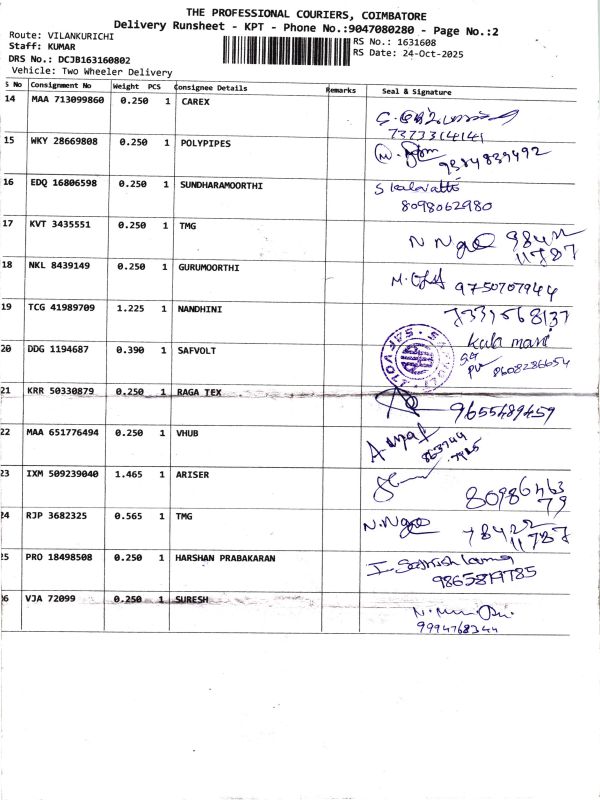 THE PROFESSIONAL COURIERS, COIMBATORE
Delivery Runsheet - KPT - Phone No.:9047080280 - Page No.:2
Route: VILANKURICHI
Staff: KUMAR
DRS No.: DCJB163160802
Vehicle: Two Wheeler Delivery
RS No.: 1631608
RS Date: 24-Oct-2025
S No Consignment No Weight PCS Consignee Details Remarks Seal & Signature
14 MAA 713099860 0.250 1 CAREX
7373314141
15 WKY 28669808 0.250 1 POLYPIPES
9384839492
16 EDQ 16806598 0.250 1 SUNDHARAMOORTHI
8098062980
17 KVT 3435551 0.250 1 TMG
18 NKL 8439149 0.250 1 GURUMOORTHI
9750707944
19 TCG 41989709 1.225 1 NANDHINI
20 DDG 1194687 0.390 1 SAFVOLT
SAFVOLT
Kala mani
8608286654
21 KRR 50330879 0.250 1 RAGA TEX
9655489459
22 MAA 651776494 0.250 1 VHUB
23 IXM 509239040 1.465 1 ARISER
24 RJP 3682325 0.565 1 TMG
25 PRO 18498508 0.250 1 HARSHAN PRABAKARAN
26 VJA 72099 0.250 1 SURESH
9994768344